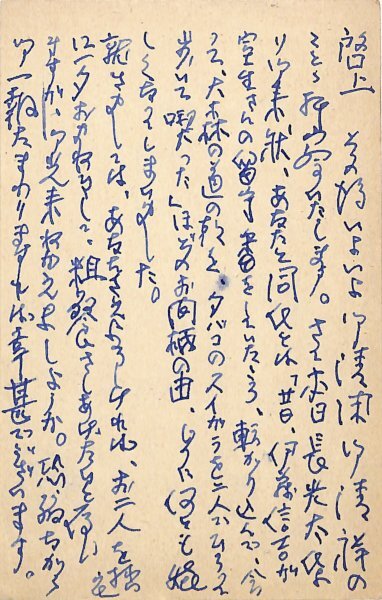 啓上 その後いよいよ御清淋御清祥の
ことゝ拝察いたします。さて本日長光太代
り御来状、あなたと同代とは「廿日、伊藤信吉が
室生さんの留守番をしていたころ、転がり込んで、会
って、大森の道の乾いたタバコのスイガラを二人でひろって
歩いて喫った」ほどのお間柄の由、しりに何とも嬉
しくなってしまいました。
就きましては、あなたさえよろしければ、お二人を拙宅
に一夕お招ねきして、粗餐さしあげたいと存じ
ますが、御光来給はえましょうか。恐縮ながら
御一報たまわりますれば幸甚でございます。